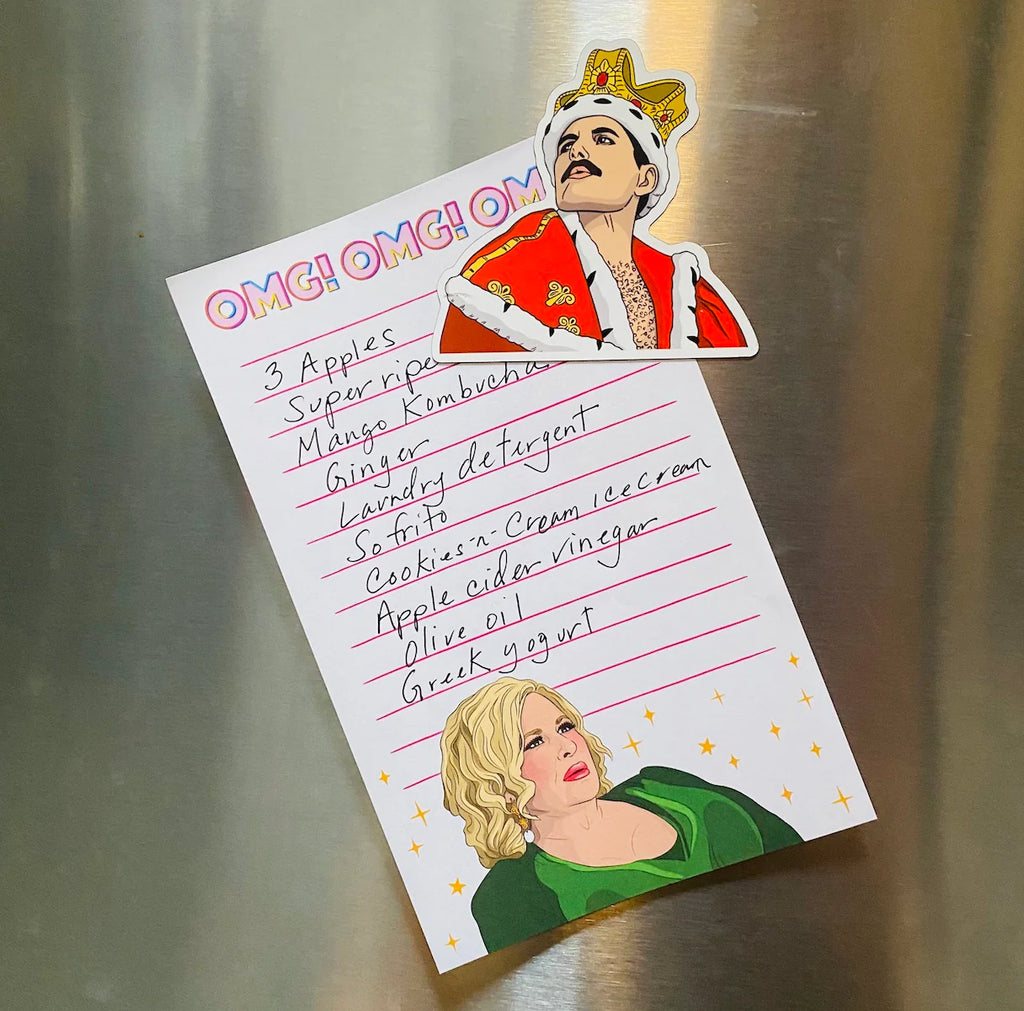 OMG! OMG! OM
3 Apples
Super ripe
Mango Kombucha
Ginger
Laundry detergent
Sofrito
Cookies-n-Cream ice cream
Apple cider vinegar
Olive oil
Greek yogurt